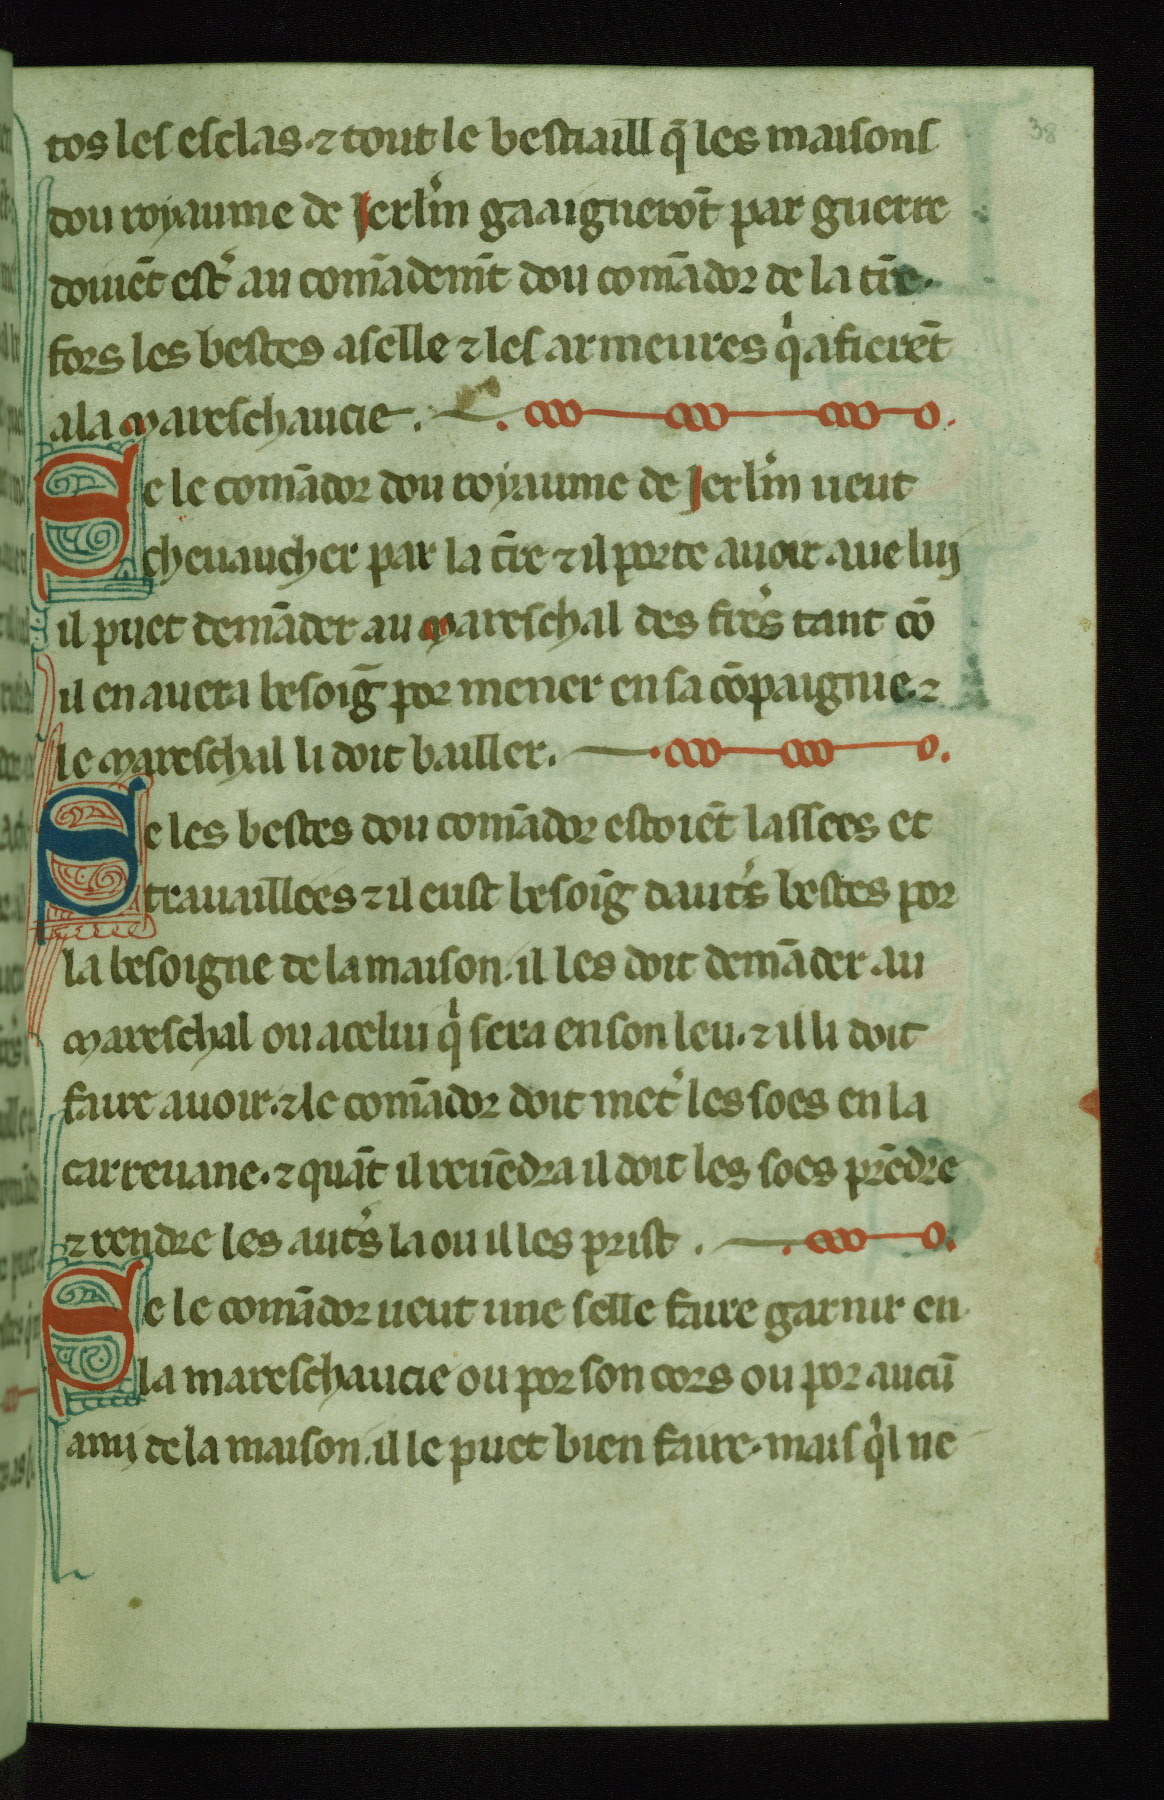 38
tos les esclas. ⁊ tout le bestiaill q̄ les maisons
dou royaume de Jerl'm gaaignerōt par guerre
doiuēt est' au comādem̄t dou comādor de la t̄re.
fors les bestes a selle ⁊ les armeures qͥ afierēt
a la mareschaucie.
Se le comādor dou royaume de Jerl'm ueut
cheuaucher par la t̄re ⁊ il porte auoir aue luy
il puet demāder au mareschal des fre's tant cō
il en auera besoiḡ por mener en sa cōpaignie. ⁊
le mareschal li doit bailler.
Se les bestes dou comādor estoiēt lassees et
trauaillees ⁊ il eust besoīg daut's bestes por
la besoigne de la maison. il les doit demāder au
mareschal ou a celui qͥ sera en son leu. ⁊ il li doit
faire auoir. ⁊ le comādor doit met' les soes en la
carreuane. ⁊ quāt il reuēdra il doit les soes prēdre
⁊ rendre les aut's la ou il les prist.
Se le comādor ueut une selle faire garnir en
la mareschaucie ou por son cors ou por aucū
amy de la maison. il le puet bien faire. mais qͥl ne